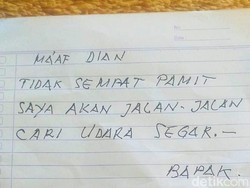 MA'AF DIAN
TIDAK SEMPAT PAMIT
SAYA AKAN JALAN-JALAN
CARI UDARA SEGAR.—
BAPAK.
detikcom